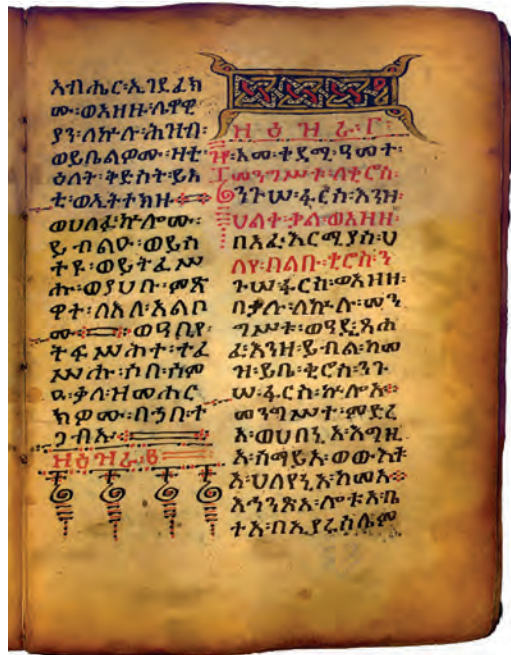 ሙ፡ወአዘዙ፡ሌዋዊ
ያን፡ለኵሉ፡ሕዝብ፡
ወይቤልዎሙ፡ዛቲ፡
ዕለት፡ቅድስት፡ይእ
ቲ፡ወኢትተክዙ፡
ወሀለፉ፡ኵሎሙ፡
ይብልዑ፡ወይስ
ተዩ፡ወይትፈሥ
ሑ፡ወያሀቡ፡ምጽ
ዋተ፡ለእለ፡አልቦ
ሙ፡ወዓቢየ፡
ትፍሥሕተ፡ተፈ
ሥሑ፡ሶበ፡ሰም
ዑ፡ቃለ፡ዘመሐር
ክዎሙ፡በኀበ፡ተ
ጋብኡ።
ዘዕዝራ፡
ዘዕዝራ፡
በአመ፡ቀደሚ፡ዓመት፡
መንግሥቱ፡ለቂሮስ፡
ንጉሠ፡ፋርስ፡እንዘ፡
ኀልቀ፡ቃል፡ወአዘዘ፡
በአፈ፡ኤርሚያስ፡ሀ
ለየ፡በልቡ፡ቂሮስ፡ን
ጉሠ፡ፋርስ፡ወአዘዘ፡
በቃሉ፡ለኵሉ፡መን
ግሥቱ፡ወዓዲ፡ጸሐ
ፈ፡እንዘ፡ይብል፡ከመ
ዝ፡ይቤ፡ቂሮስ፡ንጉ
ሠ፡ፋርስ፡ኵሎ፡አ
መንግሥተ፡ምድረ
አ፡ወሀበኒ፡አ፡እግዚ
አ፡ሰማይ፡አ፡ወውእቱ
አ፡ሀለየኒ፡አ፡ከመ፡አ
እኅንጽ፡አ፡ሎቱ፡አ፡ቤ
ተ፡አ፡በኢየሩሳሌም